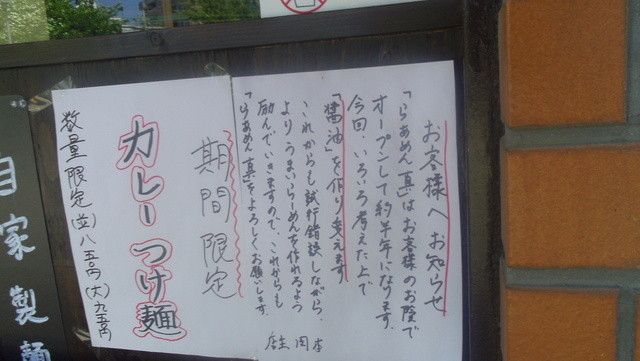 お客様へお知らせ
「らぁめん 真」はお客様のお陰で
オープンして約半年になります。
今回、いろいろ考えた上で
「醤油」を作り変えます
これからも試行錯誤しながら、
よりうまいらーめんを作れるよう
励んでいきますので、これからも
「らぁめん 真」をよろしくお願いします。
店主
期間限定
カレーつけ麺
数量限定(並)八五〇円(大)九五〇円
自家製麺